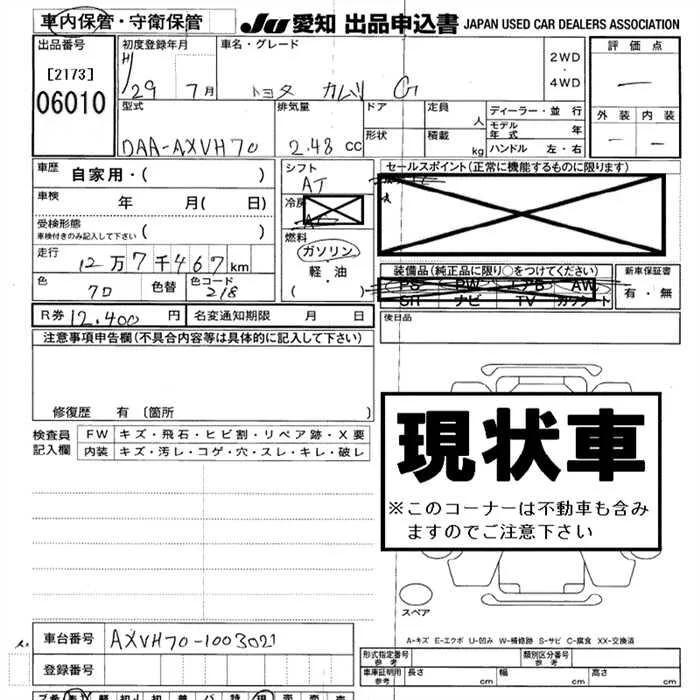 車内保管・守衛保管 JU 愛知 出品申込書 JAPAN USED CAR DEALERS ASSOCIATION
出品番号 初度登録年月 車名・グレード 2WD・4WD 評価点
[2173] H/29 7月 トヨタ カムリ G —
06010
型式 排気量 ドア 定員 人 ディーラー・並行 外装 内装
DAA-AXVH70 2.48 cc 形状 積載 kg モデル年式 年 — —
ハンドル 左・右
車歴 自家用・( ) シフト AT セールスポイント(正常に機能するものに限ります)
車検 年 月( 日) 冷房 AC
受検形態 車検付きのみ記入して下さい ( ) 燃料
走行 12万7千467km ガソリン 装備品(純正品に限り○をつけてください) 新車保証書
軽油 PS PW エアB AW 有・無
色 クロ 色替 色コード 218 ( ) SR ナビ TV カワシート
R券 12,400円 名変通知期限 月 日 後日品
注意事項申告欄(不具合内容等は具体的に記入して下さい)
修復歴 有 〔箇所 〕
検査員記入欄 FW キズ・飛石・ヒビ割・リペア跡・X要
内装 キズ・汚レ・コゲ・穴・スレ・キレ・破レ
現状車
※このコーナーは不動車も含み
ますのでご注意下さい
スペア
A-キズ E-エクボ U-凹み W-補修跡 S-サビ C-腐食 XX-交換済
車台番号 AXVH70-1003021
登録番号
形式指定番号 参考 類別区分番号 参考
車庫証明用 参考 長さ cm 幅 cm 高さ cm